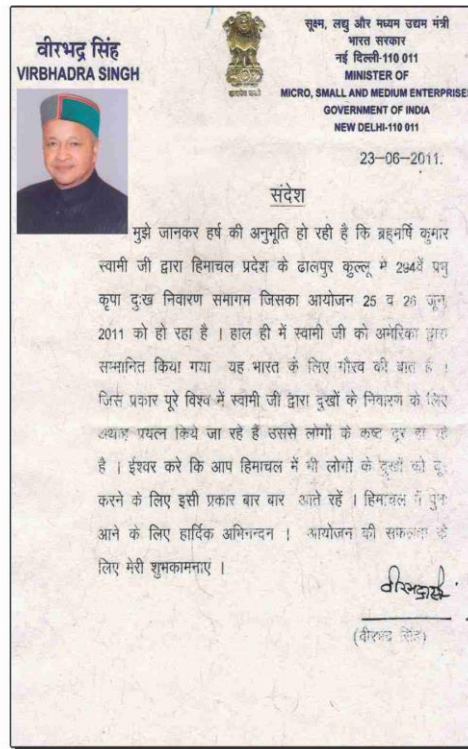 वीरभद्र सिंह
VIRBHADRA SINGH
सूक्ष्म, लघु और मध्यम उद्यम मंत्री
भारत सरकार
नई दिल्ली-110 011
MINISTER OF
MICRO, SMALL AND MEDIUM ENTERPRISES
GOVERNMENT OF INDIA
NEW DELHI-110 011
23-06-2011.
संदेश
मुझे जानकर हर्ष की अनुभूति हो रही है कि ब्रह्मर्षि कुमार
स्वामी जी द्वारा हिमाचल प्रदेश के ढालपुर कुल्लू में 294वें प्रभु
कृपा दुःख निवारण समागम जिसका आयोजन 25 व 26 जून,
2011 को हो रहा है । हाल ही में स्वामी जी को अमेरिका द्वारा
सम्मानित किया गया यह भारत के लिए गौरव की बात है ।
जिस प्रकार पूरे विश्व में स्वामी जी द्वारा दुखों के निवारण के लिए
अथाह प्रयत्न किये जा रहे हैं उससे लोगों के कष्ट दूर हो रहे
है । ईश्वर करे कि आप हिमाचल में भी लोगों के दुखों को दूर
करने के लिए इसी प्रकार बार बार आते रहें । हिमाचल में पुनः
आने के लिए हार्दिक अभिनन्दन । आयोजन की सफलता के
लिए मेरी शुभकामनाएं ।
(वीरभद्र सिंह)